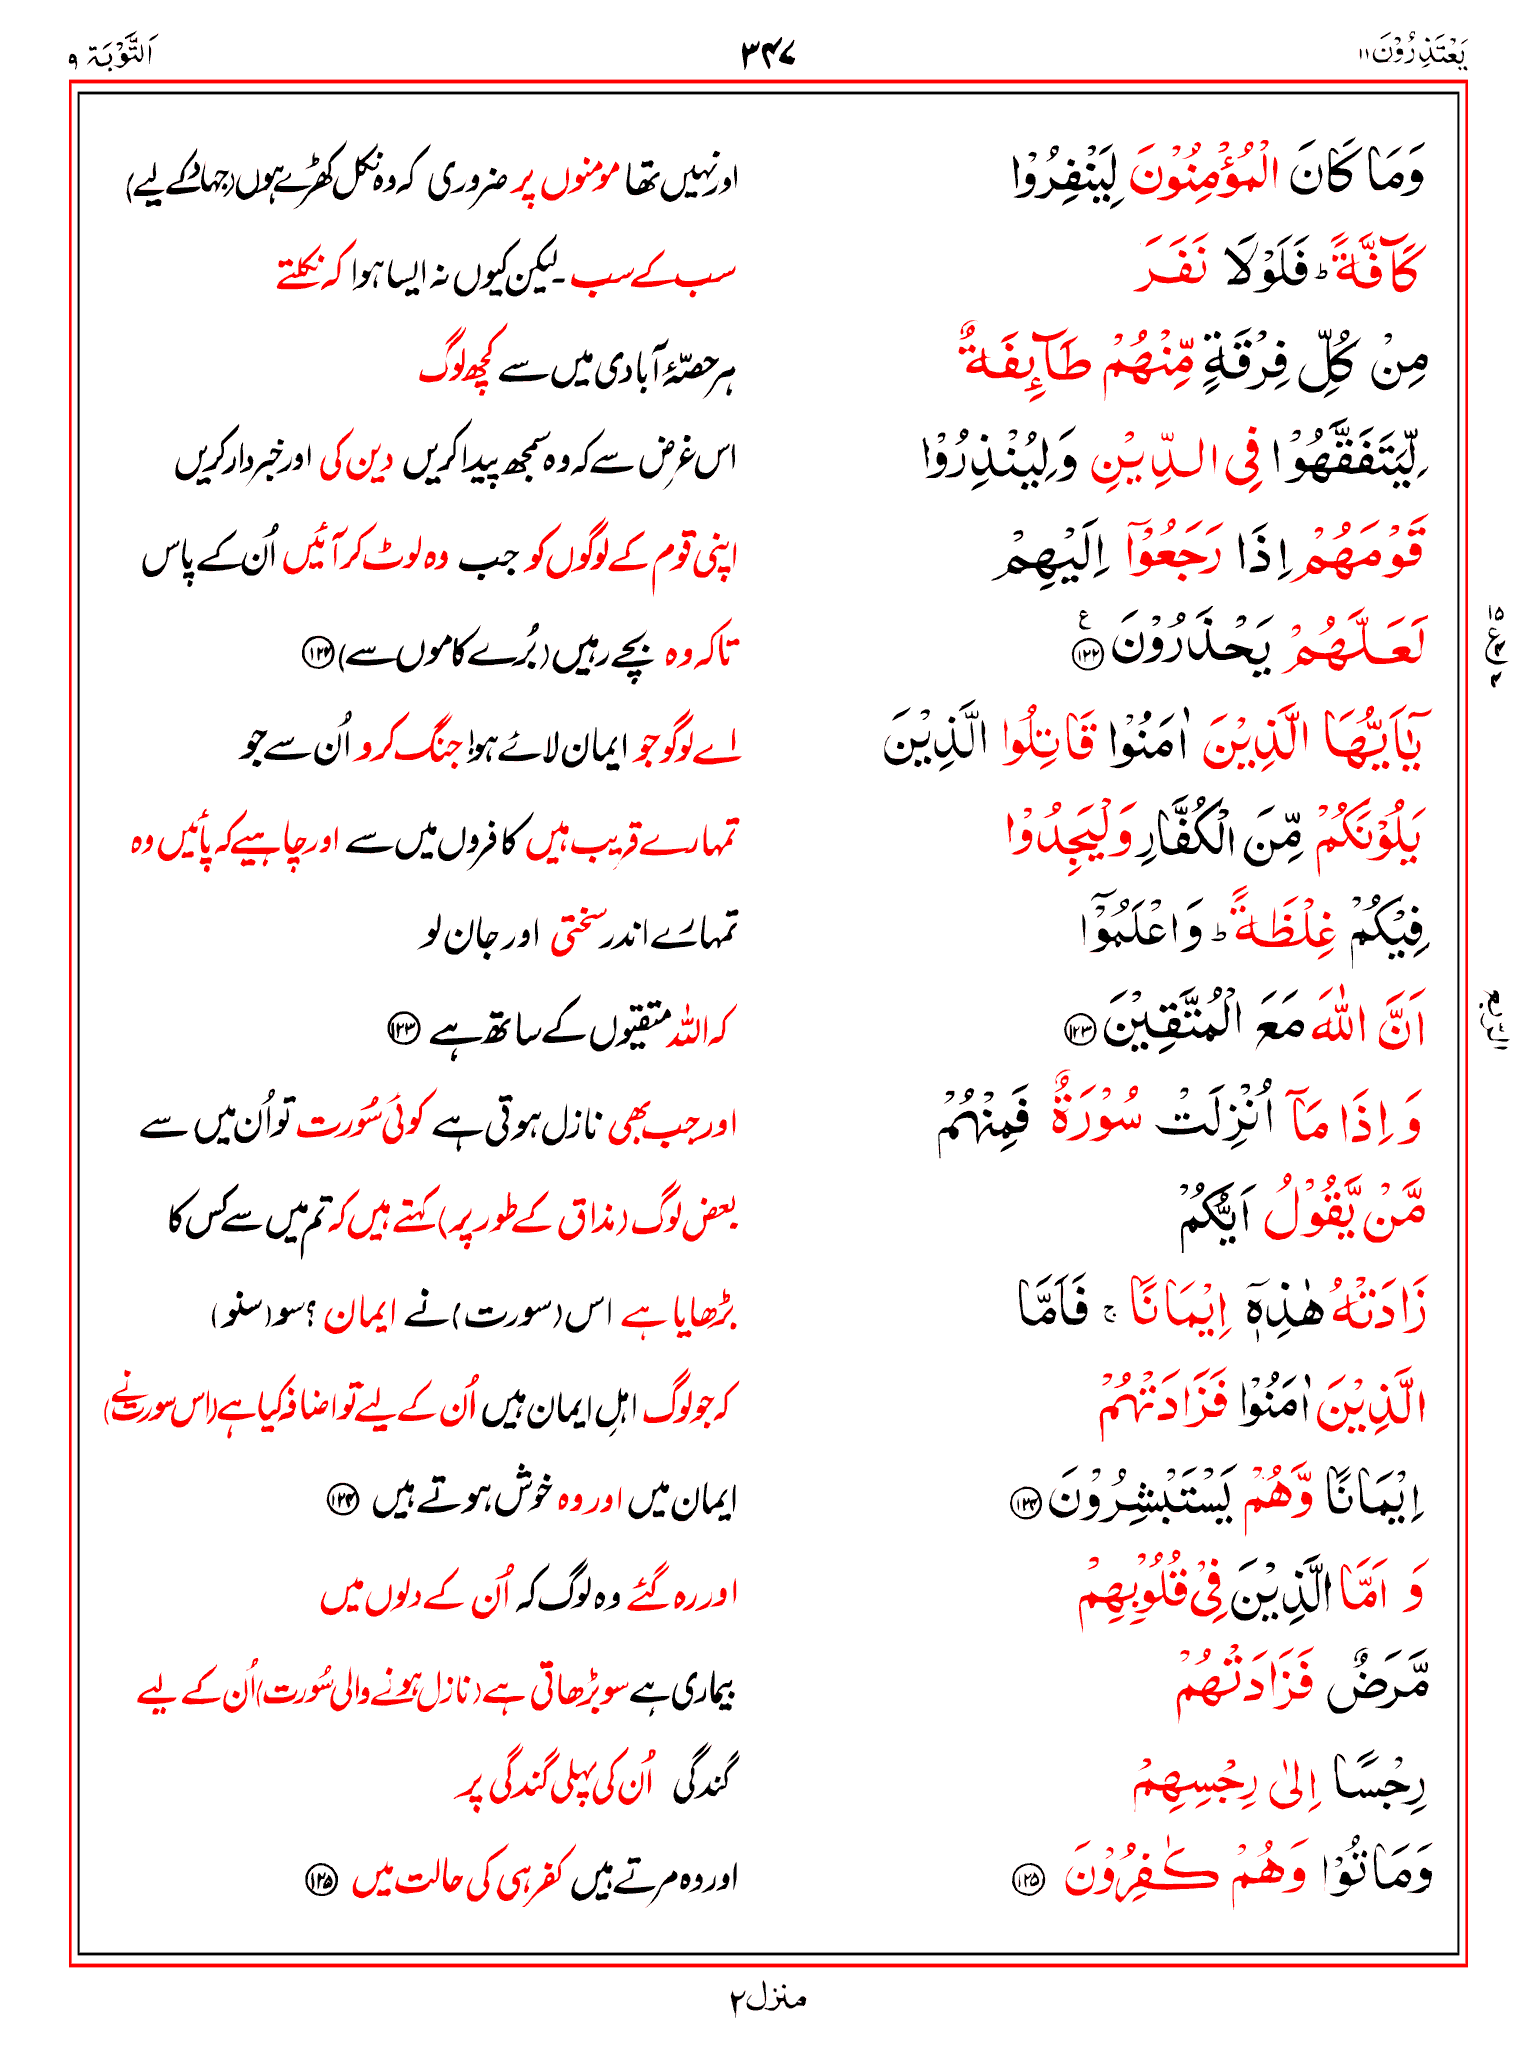 یَعْتَذِرُوْنَ ۱۱
۳۴۷
اَلتَّوْبَة ۹
وَمَا كَانَ الْمُؤْمِنُوْنَ لِيَنْفِرُوْا
اور نہیں تھا مومنوں پر ضروری کہ وہ نکل کھڑے ہوں (جہاد کے لیے)
كَآفَّةً ؕ فَلَوْلَا نَفَرَ
سب کے سب۔ لیکن کیوں نہ ایسا ہوا کہ نکلتے
مِنْ كُلِّ فِرْقَةٍ مِّنْهُمْ طَآىِٕفَةٌ
ہر حصّۂ آبادی میں سے کچھ لوگ
لِّيَتَفَقَّهُوْا فِى الدِّيْنِ وَلِيُنْذِرُوْا
اس غرض سے کہ وہ سمجھ پیدا کریں دین کی اور خبردار کریں
قَوْمَهُمْ اِذَا رَجَعُوْۤا اِلَيْهِمْ
اپنی قوم کے لوگوں کو جب وہ لوٹ کر آئیں اُن کے پاس
لَعَلَّهُمْ يَحْذَرُوْنَ ۱۲۲ ع
تاکہ وہ بچے رہیں (بُرے کاموں سے) ۱۲۲
يٰۤاَيُّهَا الَّذِيْنَ اٰمَنُوْا قَاتِلُوا الَّذِيْنَ
اے لوگو جو ایمان لائے ہو! جنگ کرو اُن سے جو
يَلُوْنَكُمْ مِّنَ الْكُفَّارِ وَلْيَجِدُوْا
تمہارے قریب ہیں کافروں میں سے اور چاہیے کہ پائیں وہ
فِيْكُمْ غِلْظَةً ؕ وَاعْلَمُوْۤا
تمہارے اندر سختی اور جان لو
اَنَّ اللّٰهَ مَعَ الْمُتَّقِيْنَ ۱۲۳
کہ اللہ متقیوں کے ساتھ ہے ۱۲۳
وَاِذَا مَاۤ اُنْزِلَتْ سُوْرَةٌ فَمِنْهُمْ
اور جب بھی نازل ہوتی ہے کوئی سُورت تو اُن میں سے
مَّنْ يَّقُوْلُ اَيُّكُمْ
بعض لوگ (مذاق کے طور پر) کہتے ہیں کہ تم میں سے کس کا
زَادَتْهُ هٰذِهٖۤ اِيْمَانًا ۚ فَاَمَّا
بڑھایا ہے اس (سورت) نے ایمان؟ سو (سنو)
الَّذِيْنَ اٰمَنُوْا فَزَادَتْهُمْ
کہ جو لوگ اہلِ ایمان ہیں اُن کے لیے تو اضافہ کیا ہے (اس سورت نے)
اِيْمَانًا وَّهُمْ يَسْتَبْشِرُوْنَ ۱۲۴
ایمان میں اور وہ خوش ہوتے ہیں ۱۲۴
وَ اَمَّا الَّذِيْنَ فِىْ قُلُوْبِهِمْ
اور رہ گئے وہ لوگ کہ اُن کے دلوں میں
مَّرَضٌ فَزَادَتْهُمْ
بیماری ہے سو بڑھاتی ہے (نازل ہونے والی سُورت) اُن کے لیے
رِجْسًا اِلٰى رِجْسِهِمْ
گندگی اُن کی پہلی گندگی پر
وَمَاتُوْا وَهُمْ كٰفِرُوْنَ ۱۲۵
اور وہ مرتے ہیں کفر ہی کی حالت میں ۱۲۵
الرّبع
منزل ۲